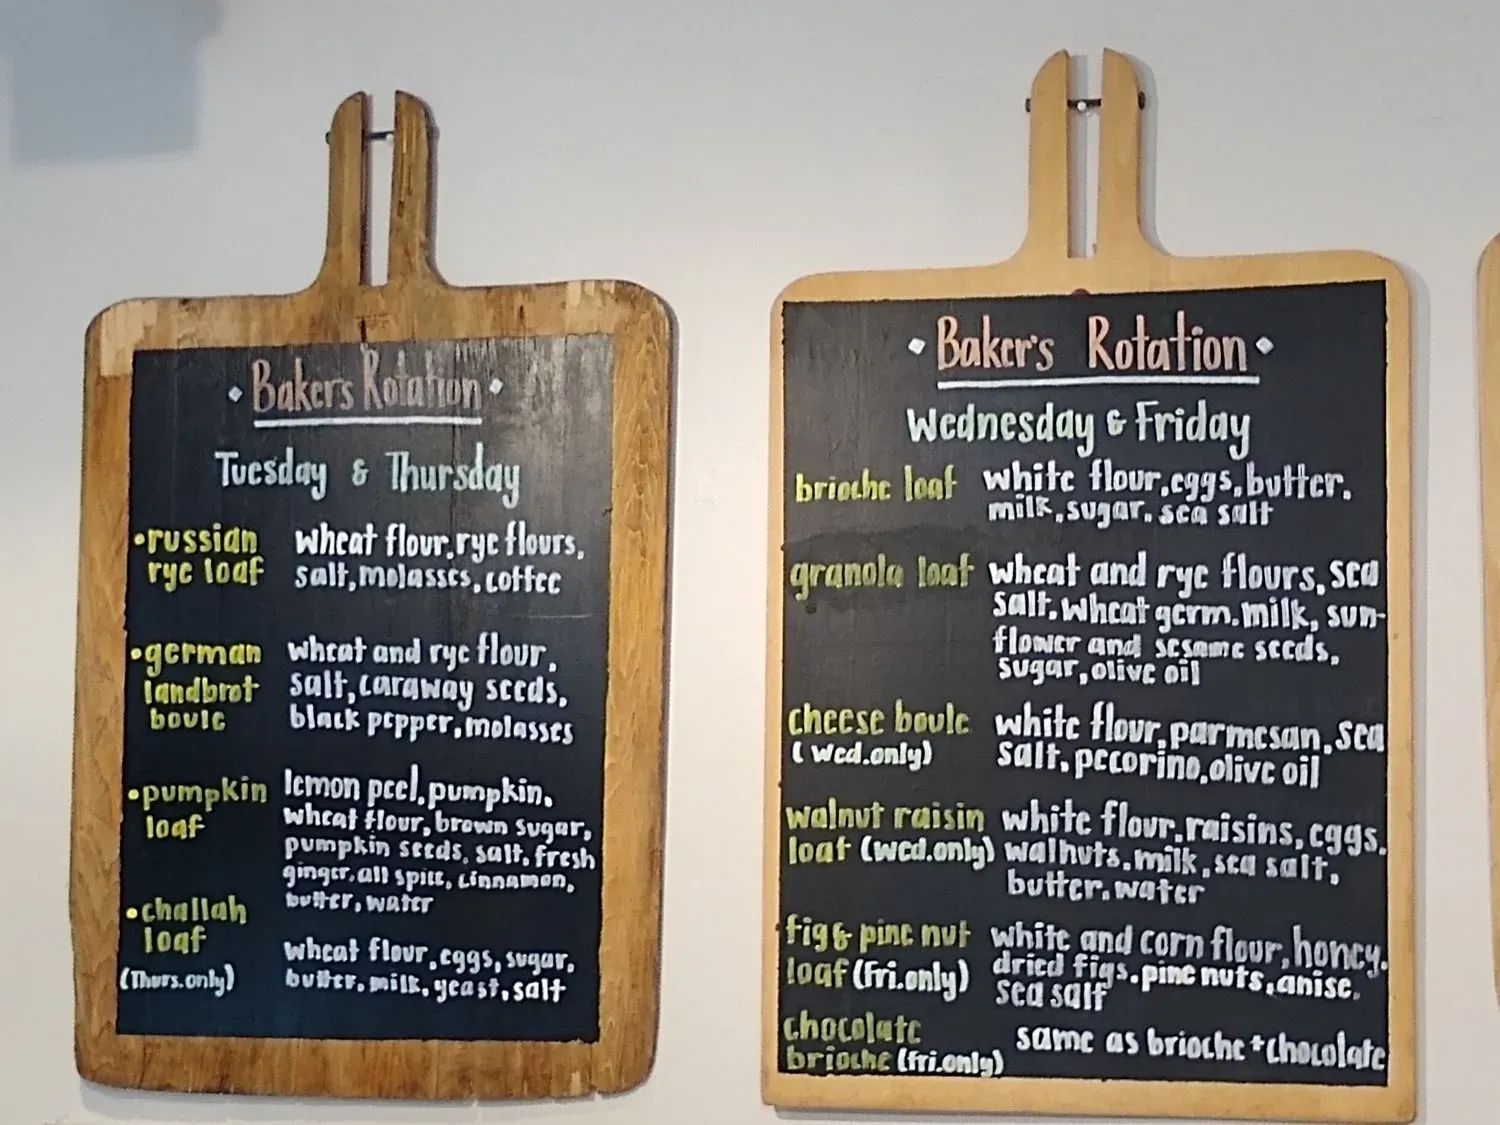 Baker's Rotation
Tuesday & Thursday
• russian
rye loaf
wheat flour, rye flours,
salt, molasses, coffee
• german
landbrot
boule
wheat and rye flour,
salt, caraway seeds,
black pepper, molasses
• pumpkin
loaf
lemon peel, pumpkin,
wheat flour, brown sugar,
pumpkin seeds, salt, fresh
ginger, all spice, cinnamon,
butter, water
• challah
loaf
(Thurs. only)
wheat flour, eggs, sugar,
butter, milk, yeast, salt
Baker's Rotation
Wednesday & Friday
brioche loaf
white flour, eggs, butter,
milk, sugar, sea salt
granola loaf
wheat and rye flours, sea
salt, wheat germ, milk, sun-
flower and sesame seeds,
sugar, olive oil
cheese boule
(Wed. only)
white flour, parmesan, sea
salt, pecorino, olive oil
walnut raisin
loaf (wed. only)
white flour, raisins, eggs,
walnuts, milk, sea salt,
butter, water
fig & pine nut
loaf (Fri. only)
white and corn flour, honey,
dried figs, pine nuts, anise,
sea salt
chocolate
brioche (fri. only)
same as brioche + chocolate